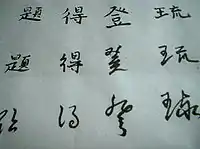 題 得 登 琉
題 得 登 琉
题 得 登 琉